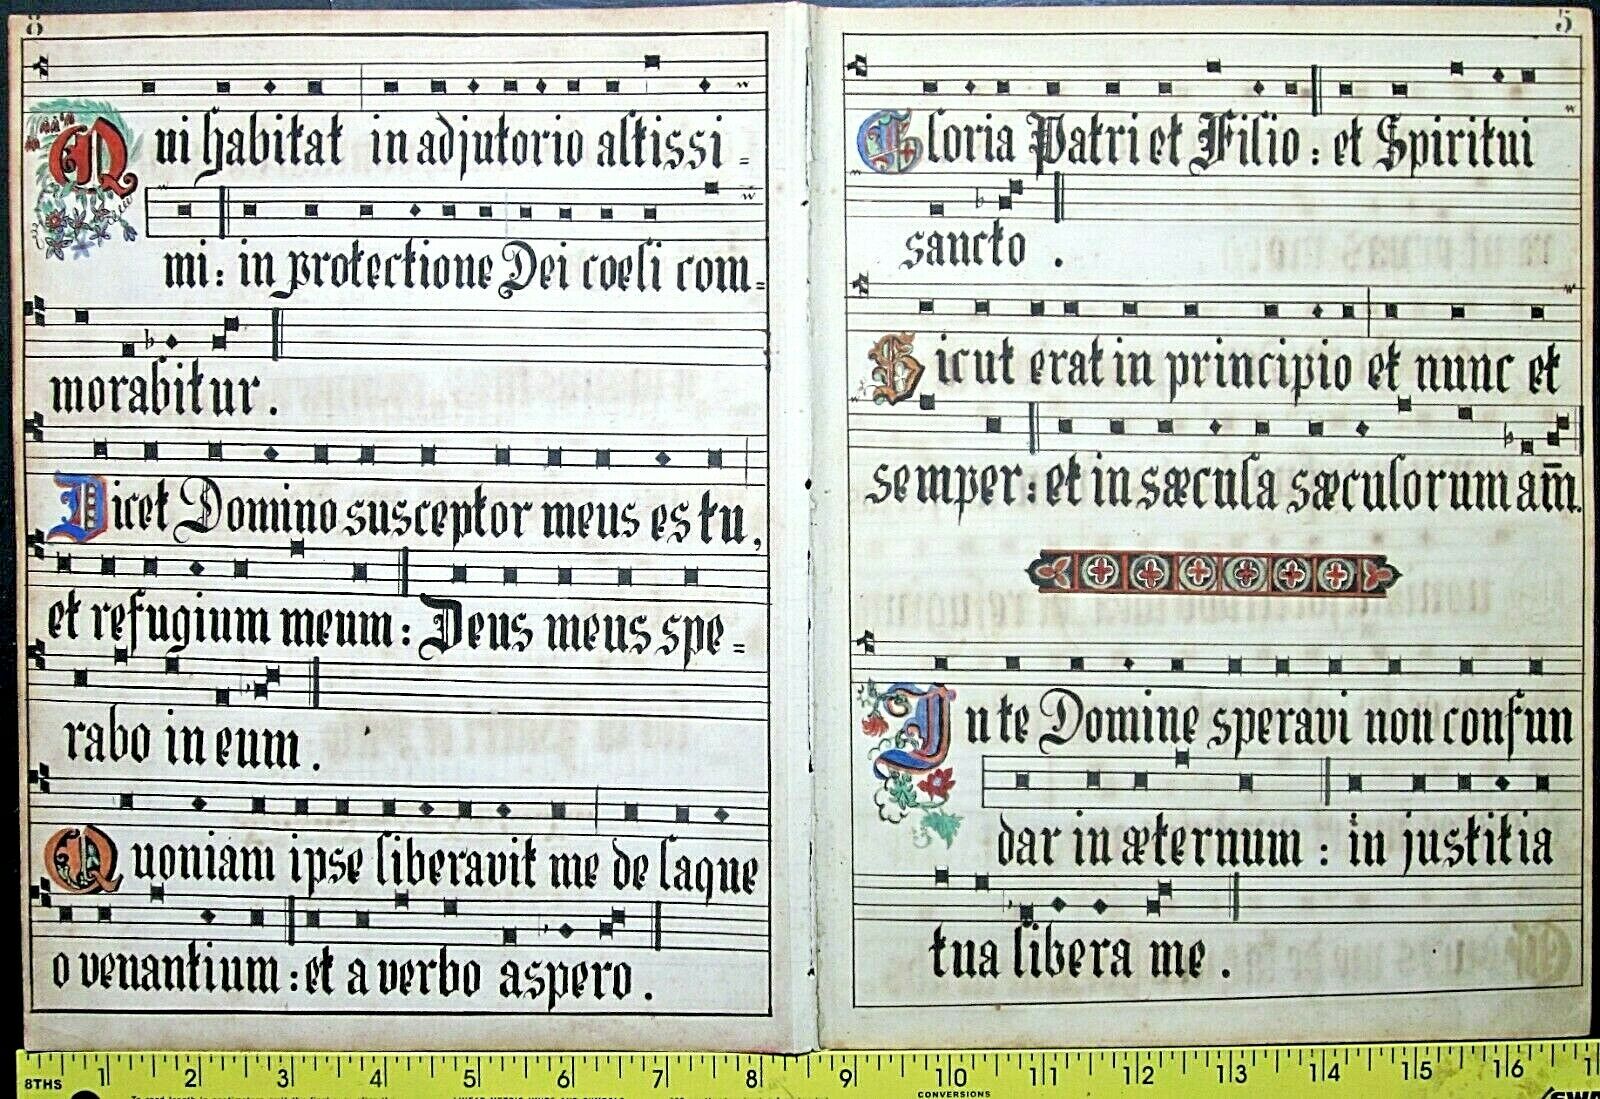 8
Qui habitat in adjutorio altissi =
mi: in protectione Dei coeli com=
morabitur.
Dicet Domino susceptor meus es tu,
et refugium meum: Deus meus spe=
rabo in eum.
Quoniam ipse liberavit me de laque
o venantium: et a verbo aspero.
5
Gloria Patri et Filio: et Spiritui
sancto.
Sicut erat in principio et nunc et
semper: et in sæcula sæculorum am̄.
In te Domine speravi non confun
dar in æternum: in justitia
tua libera me.
8THS 1 2 3 4 5 6 7 8 9 10 11 12 13 14 15 16
CONVERSIONS